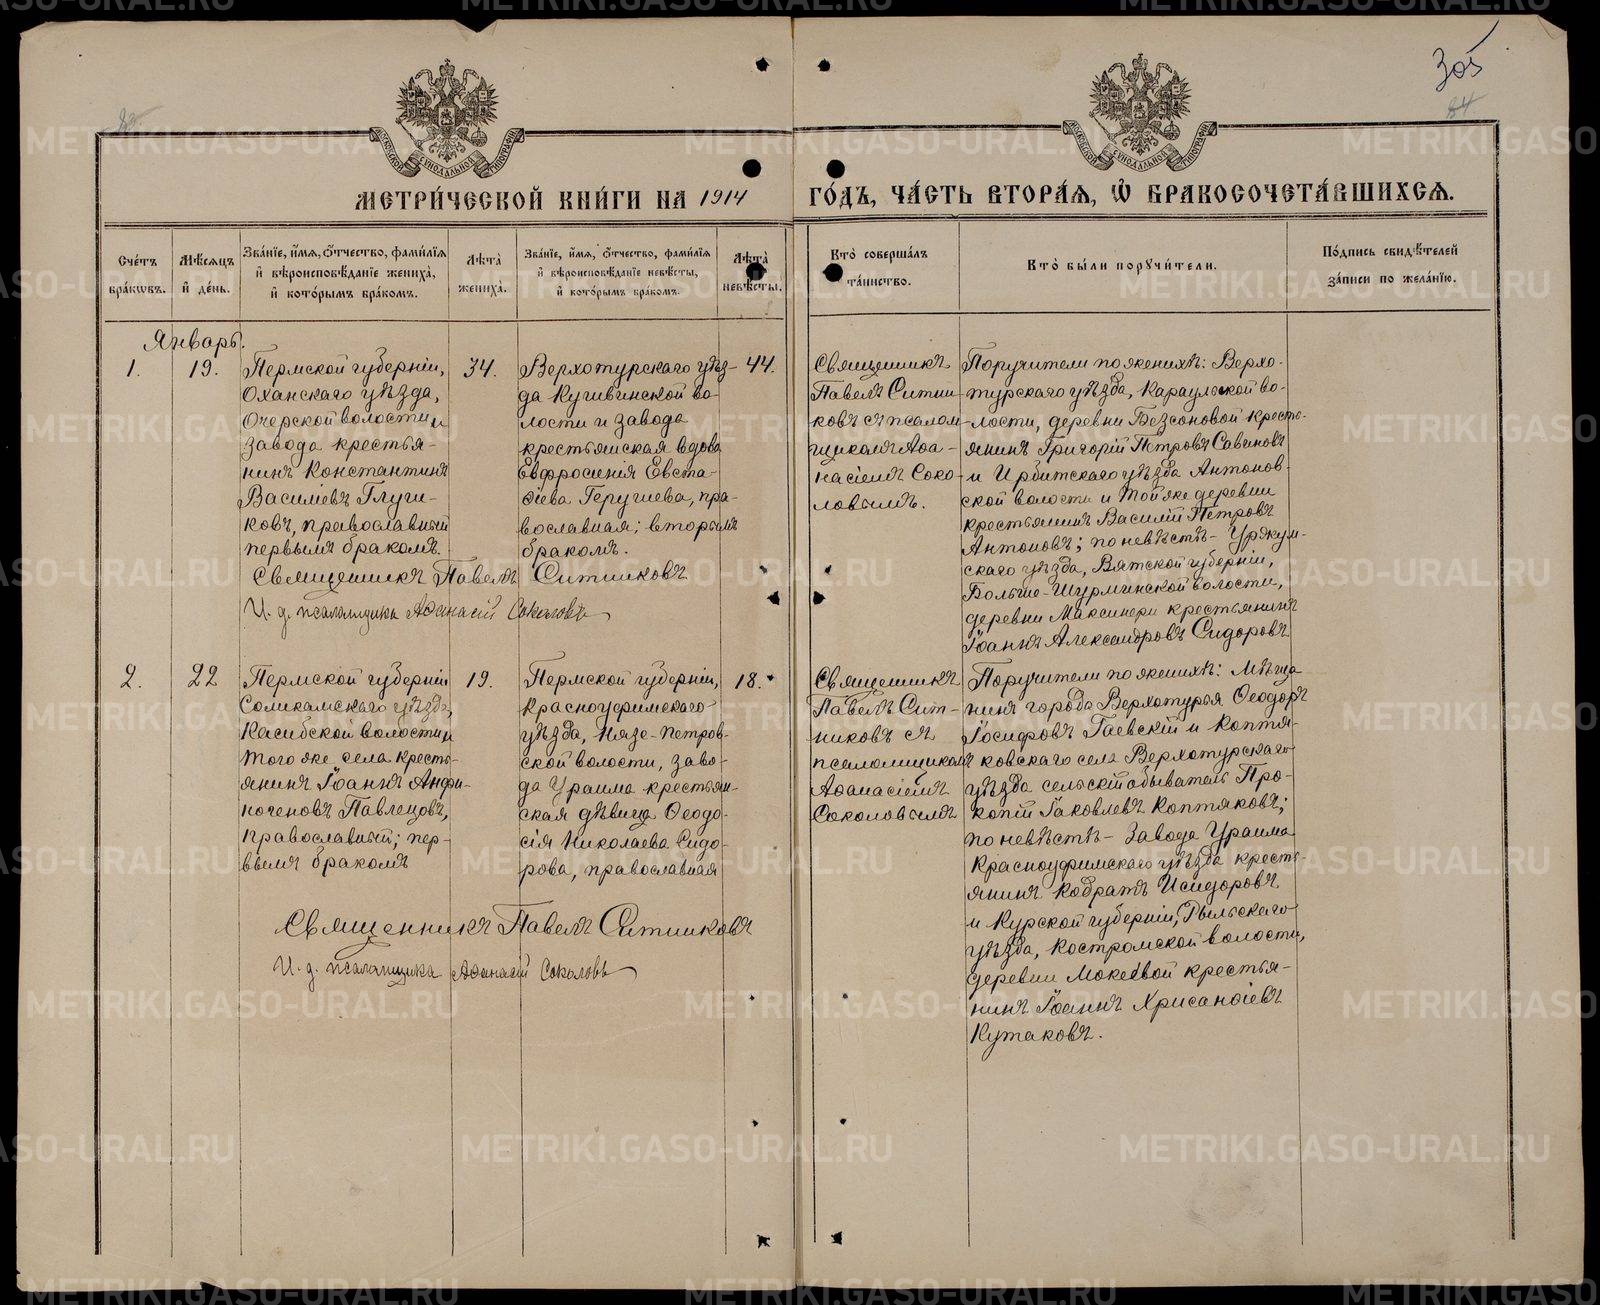 305
84
МЕТРИ́ЧЕСКОЙ КНИ́ГИ НА 1914
ГО́ДЪ, ЧА́СТЬ ВТОРА́Ѧ, Ѽ БРАКОСОЧЕТА́ВШИХСѦ.
Сче́тъ бра́кѡвъ.
Мѣ́сѧцъ и҆ де́нь.
Зва́нїе, и҆́мѧ, ѻ҆́тчество, фами́лїѧ
и҆ вѣроисповѣ́данїе жениха̀,
и҆ кото́рымъ бра́комъ.
Лѣ́та̀ жениха̀.
Зва́нїе, и҆́мѧ, ѻ҆́тчество, фами́лїѧ
и҆ вѣроисповѣ́данїе невѣ́сты,
и҆ кото́рымъ бра́комъ.
Лѣ́та̀ невѣ́сты.
Кто̀ соверша́лъ та́инство.
Кто̀ бы́ли порꙋчи́тели.
По́дпись свидѣ́телей
за́писи по жела́нїю.
Январь.
1.
19.
Пермской губернiи,
Оханскаго уѣзда,
Очерской волости и
завода крестья-
нинъ Константинъ
Василiевъ Глуги-
ковъ, православный
первымъ бракомъ.
34.
Верхотурскаго уѣз-
да Кушвинской во-
лости и завода
крестьянская вдова
Евфросинiя Евста-
фiева
пра-
вославная; вторымъ
бракомъ.
44.
Священникъ
Павелъ Ситни-
ковъ съ псалом-
щикомъ Аѳа-
насiемъ Соко-
ловымъ.
Поручители по женихѣ: Верхо-
турскаго уѣзда, Караульской во-
лости, деревни Безсоновой кресть-
янинъ Григорiй Петровъ Савиновъ
и Ирбитскаго уѣзда Антонов-
ской волости и той же деревни
крестьянинъ Василiй Петровъ
Антоновъ; по невѣстѣ - Уржум-
скаго уѣзда, Вятской губернiи,
Больше-Шурминской волости,
деревни Максинери крестьянинъ
Iоаннъ Александровъ Сидоровъ
Священникъ Павелъ Ситниковъ
И. д. псаломщика Аѳанасiй Соколовъ
2.
22
Пермской губернiи
Соликамскаго уѣзда,
Касибской волости и
того же села кресть-
янинъ Iоаннъ Анфи-
ногеновъ Павлецовъ,
православный; пер-
вымъ бракомъ
19.
Пермской губернiи,
Красноуфимскаго
уѣзда, Нязе-Петров-
ской волости, заво-
да Ураима крестьян-
ская дѣвица Ѳеодо-
сiя Николаева Сидо-
рова, православная
18.
Священникъ
Павелъ Сит-
никовъ съ
псаломщикомъ
Аѳанасiемъ
Соколовымъ
Поручители по женихѣ: Мѣща-
нинъ города Верхотурья Ѳеодоръ
Iосифовъ Гаевскiй и Коптя-
ковскаго села Верхотурскаго
уѣзда сельскiй обыватель Про-
копiй Iаковлевъ Коптяковъ;
по невѣстѣ - Завода Ураима
Красноуфимскаго уѣзда кресть-
янинъ Кодратъ Исидоровъ
и Курской губернiи, Рыльскаго
уѣзда, Костромской волости,
деревни Мокеевой крестья-
нинъ Iоаннъ Хрисанфiевъ
Кутаковъ.
Священникъ Павелъ Ситниковъ
И. д. псаломщика Аѳанасiй Соколовъ
METRIKI.GASO-URAL.RU